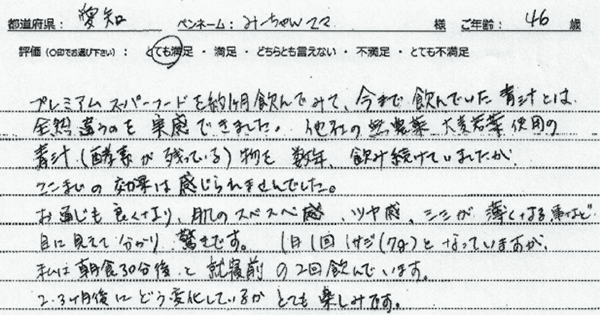 都道府県： 愛知 ペンネーム：みーちゃんママ 様 ご年齢： 46 歳
評価（〇印でお選び下さい）： とても満足 ・ 満足 ・ どちらとも言えない ・ 不満足 ・ とても不満足
プレミアムスーパーフードを約1ヶ月飲んでみて、今まで飲んでいた青汁とは
全然違うのを実感できました。他社の無農薬 大麦若葉使用の
青汁（酵素が残っている）物を数年、飲み続けていましたが
ここまでの効果は感じられませんでした。
お通じも良くなり、肌のスベスベ感、ツヤ感、シミが薄くなる事など
目に見えて分かり 驚きです。 1日1回1サジ（7g）となっていますが、
私は朝食30分後と就寝前の2回飲んでいます。
2.3ヶ月後にどう変化しているかとても楽しみです。